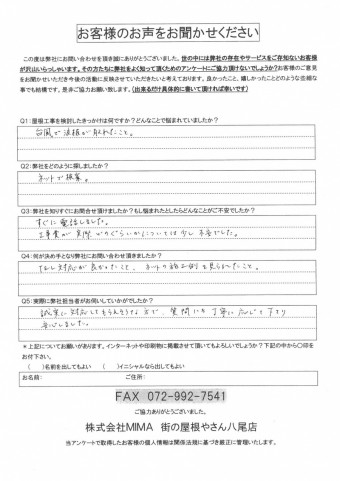 お客様のお声をお聞かせください
この度は弊社にお問い合わせを頂き誠にありがとうございました。世の中には弊社の存在やサービスをご存知ないお客様
が沢山いらっしゃいます。その方たちに弊社をよく知って頂くためのアンケートにご協力頂けないでしょうか？お客様のご意見
をお聞かせいただき今後の活動に反映させていただきたいと考えております。良かったこと、嬉しかったことどのような些細な
事でも結構です。是非ご協力お願い致します。(出来るだけ具体的に書いて頂ければ幸いです)
Q1：屋根工事を検討したきっかけは何ですか？どんなことで悩まれていましたか？
台風で波板が取れたこと。
Q2：弊社をどのように探しましたか？
ネットで検索。
Q3：弊社を知りすぐにお問合せ頂けましたか？もし悩まれたとしたらどんなことがご不安でしたか？
すぐに電話しました。
工事費が実際どのぐらいかについては少し不安でした。
Q4：何が決め手となり弊社にお問い合わせ頂きましたか？
対応が良かったこと、ネットの施工例を見られたこと。
Q5：実際に弊社担当者がお伺いしていかがでしたか？
誠実に対応してもらえそうな方で、質問にも丁寧に応じて下さり
安心しました。
＊上記についてお願いがあります。インターネットや印刷物に掲載させて頂いてもよろしいでしょうか？下記の中から〇印を
お付下さい。
( )名前を出してもよい ( )イニシャルなら出してもよい
お名前： ご住所：
FAX 072-992-7541
ご協力ありがとうございました。
株式会社MIMA 街の屋根やさん八尾店
当アンケートで取得したお客様の個人情報は関係法規に基づき厳正に管理いたします。